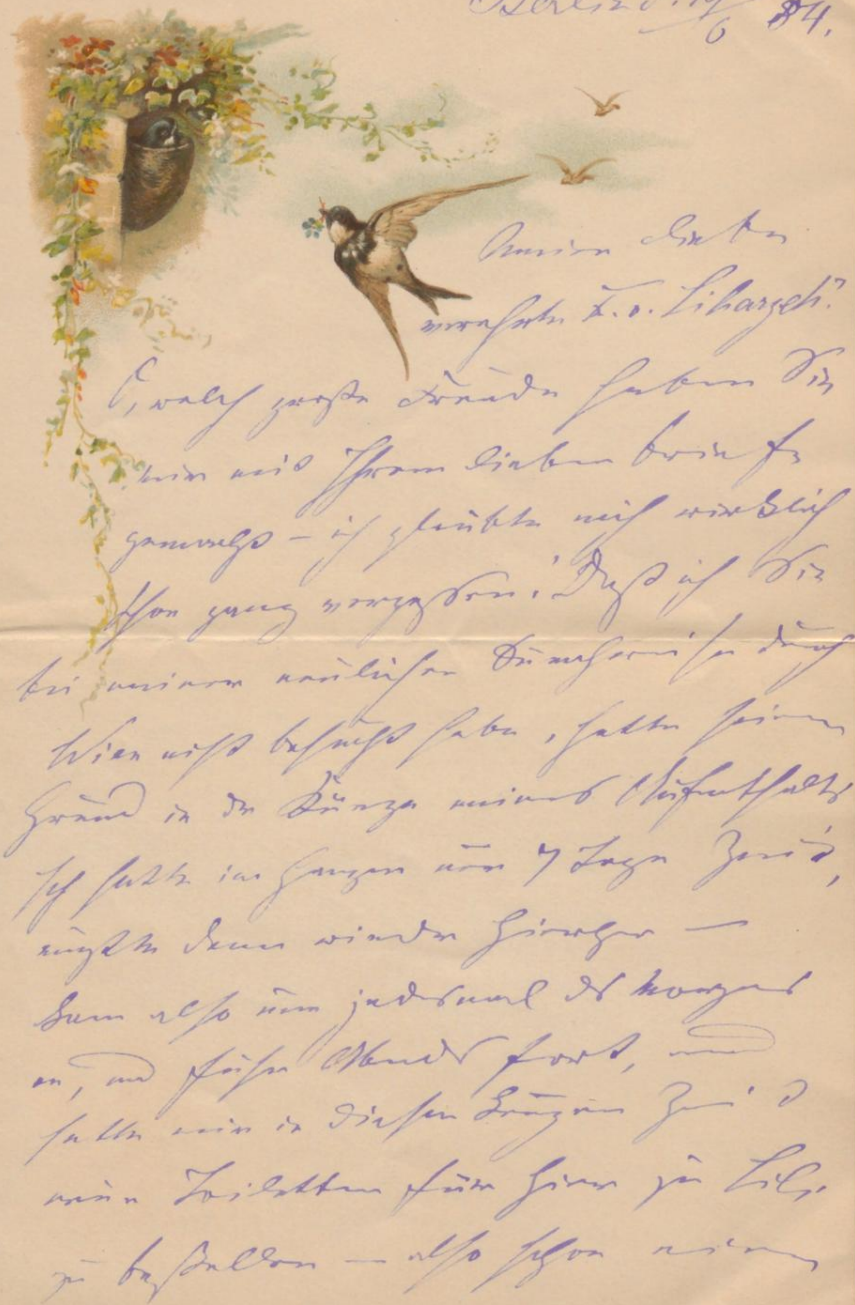 Berlin d. 14/6 84.
Meine liebe
verehrte F. v. Liharzek!
O, welch große Freude haben Sie
mir mit Ihrem lieben Briefe
gemacht – ich glaubte mich wirklich
schon ganz vergessen! Daß ich Sie
bei meiner neulichen durch
Wien nicht besucht habe, hatte seinen
Grund in der Kürze meines Aufenthalts
Ich hatte im Ganzen nur 7 Tage Zeit,
mußte dann wieder hierher –
kam also nur jedesmal des Morgens
an, und fuhr Abends fort, und
hatte mir in dieser kurzen Zeit
neue Toiletten für hier zu
zu bestellen – also schon